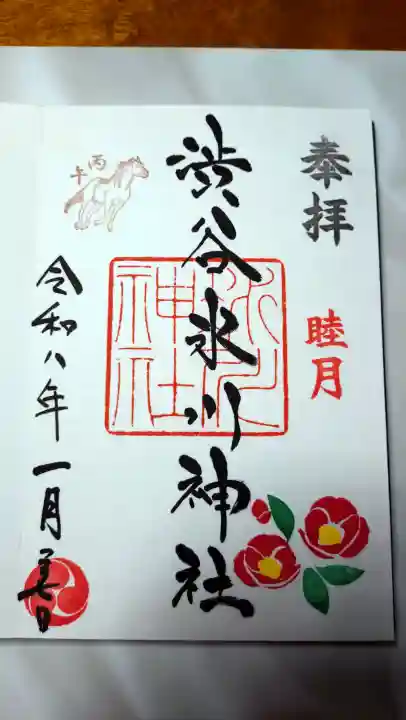 奉拝
睦月
渋谷氷川神社
氷川
神社
丙午
令和八年一月日